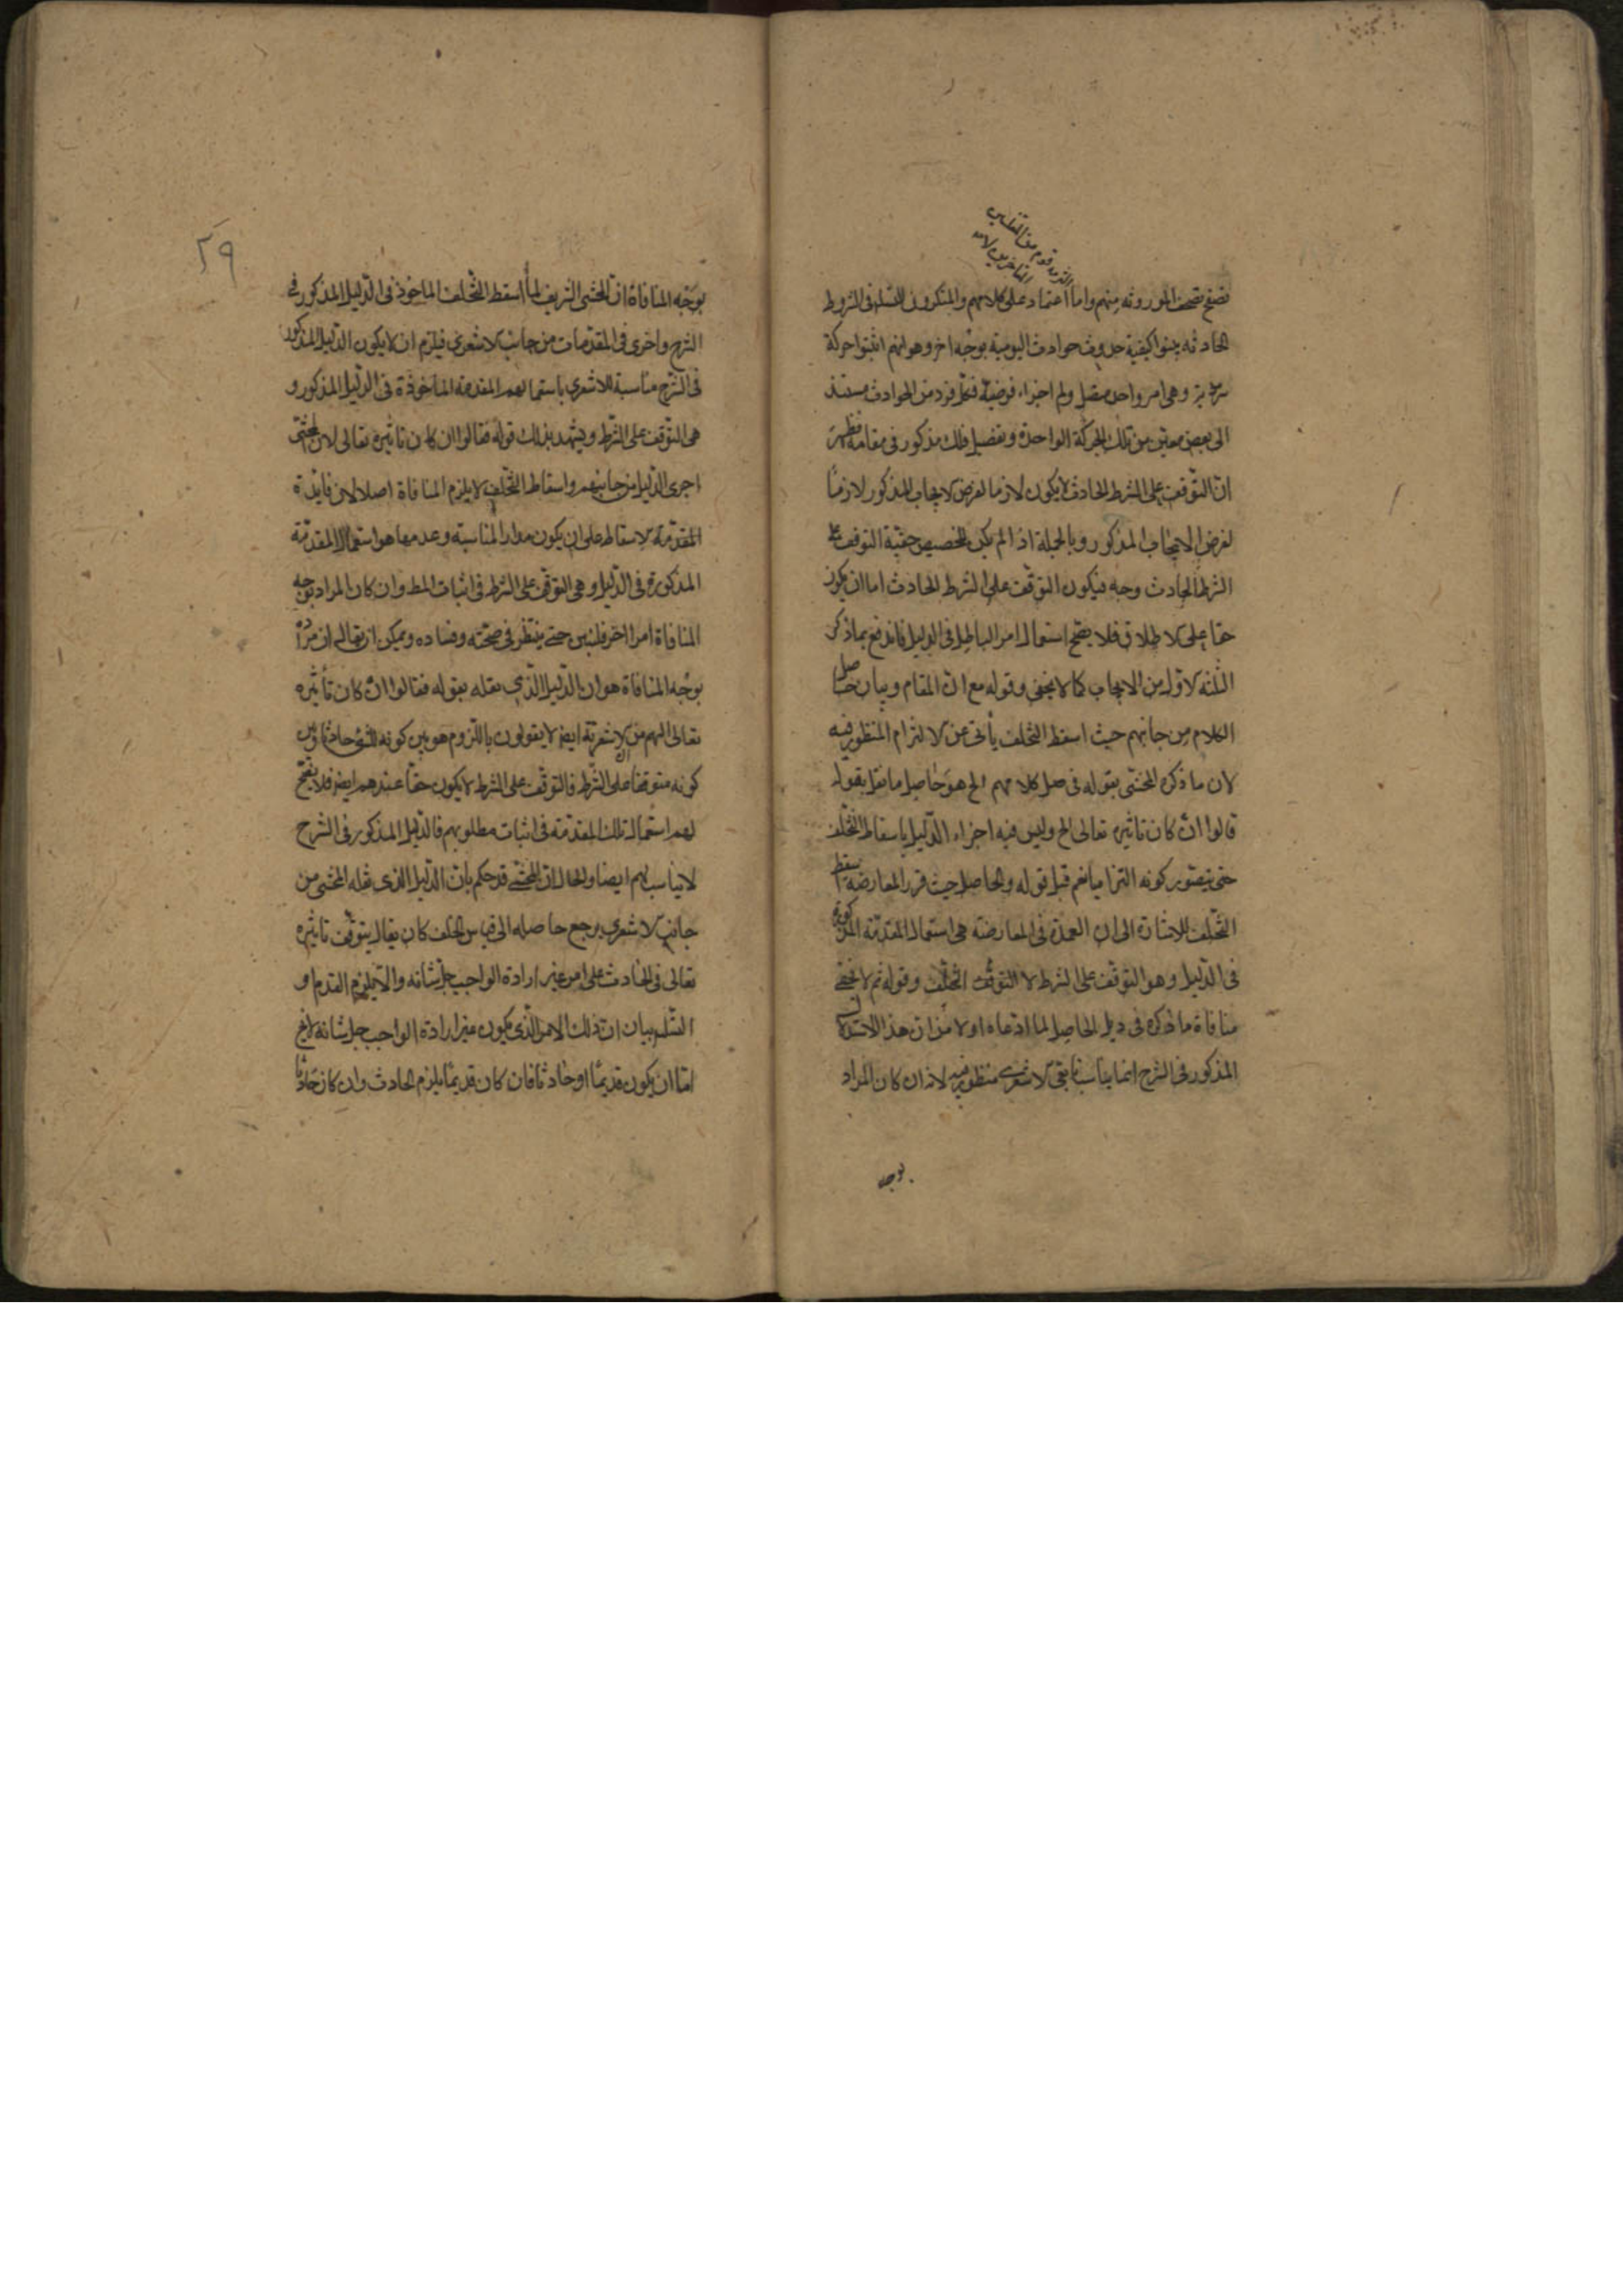 تصفح الموروثه منهم واما اعتماد على كلامهم والمنكرون للتسلسل فى الشروط
الحادثه بينوا كيفية حدوث حوادث اليومية بوجه اخر وهو انهم اثبتوا حركة
وهى امر واحد متصل ولم اجزاء فرضية فكل فرد من الحوادث مستند
الى بعض معين من تلك الحركة الواحدة وتفصيل ذلك مذكور فى مقامه فظهر
ان التوقف على الشرط الحادث لا يكون لازما لفرض الايجاب المذكور لازما
لفرض الايجاب المذكور وبالجملة اذا لم يكن لتخصيص حقية التوقف على
الشرط الحادث وجه فيكون التوقف على الشرط الحادث اما ان يكون
حقا على الاطلاق فلا يصح استعمال امر الباطل فى الدليل فاندفع بما ذكر
الثلثه الاول من الايجاب كما لا يخفى وقوله مع ان المقام وبيان حاصل
الكلام من جانبهم حيث اسقط التخلف يأبى عن الالتزام المنظور فيه
لان ما ذكره المحشى بقوله فى حاصل كلامهم الخ هو حاصل ما نقل بقوله
قالوا ان كان تاثيره تعالى الخ وليس فيه اجزاء الدليل باسقاط التخلف
حتى يتصور كونه التزاميا نعم قبل قوله والحاصل حيث قرر المعارضة اسقط
التخلف للاشارة الى ان العمدة فى المعارضة هى استعمال المقدمة المذكورة
فى الدليل وهو التوقف على الشرط لا التوقف التخلف وقوله ثم لا يخفى
منافاة ما ذكره فى ذيل الحاصل لما ادعاه اولا من ان هذا الاستدلال
المذكور فى الشرح انما يناسب الاشعرى منظور فيه لانه ان كان المراد
بوجه
٢٩
بوجه المنافاة ان المحشى الشريف لما اسقط التخلف الماخوذ فى الدليل المذكور فى
الشرح واخرى فى المقدمات من جانب الاشعرى فيلزم ان لا يكون الدليل المذكور
فى الشرح مناسبة للاشعرى باستعمالهم المقدمة المأخوذة فى الدليل المذكور و
هى التوقف على الشرط ويشهد بذلك قوله فقالوا ان كان تاثيره تعالى لان المحشى
اجرى الدليل من جانبهم واسقاط التخلف لا يلزم المنافاة اصلا لان فايدة
المقدمة الاسقاط على ان يكون مدار المناسبة وعدمها هو استعمال المقدمة
المذكورة فى الدليل وهى التوقف على الشرط فى اثبات المط وان كان المراد بوجه
المنافاة امرا اخر فليبين حتى ينظر فى صحته وفساده ويمكن ان يقال ان مراد
بوجه المنافاة هو ان الدليل الذى نقله بقوله فقالوا ان كان تأثيره
تعالى الهم من الاشعرية ايضا لا يقولون باللزوم هو بين كونه للشى حادثا وبين
كونه متوقفا على الشرط فالتوقف على الشرط لا يكون حقا عندهم ايضا فلا يصح
لهم استعمال تلك المقدمة فى اثبات مطلوبهم فالدليل المذكور فى الشرح
لا يناسب لهم ايضا والحال ان المحشى قد حكم بان الدليل الذى نقله المحشى من
جانب الاشعرى يرجع حاصله الى قياس الخلف كان يقال يتوقف تاثيره
تعالى فى الحادث على امر غير ارادة الواجب جل شانه والا يلزم القدم او
التسلسل بيان ان ذلك الامر الذى يكون غير ارادة الواجب جل شانه لا يخ
اما ان يكون قديما او حادثا فان كان قديما يلزم الحادث وان كان حادثا